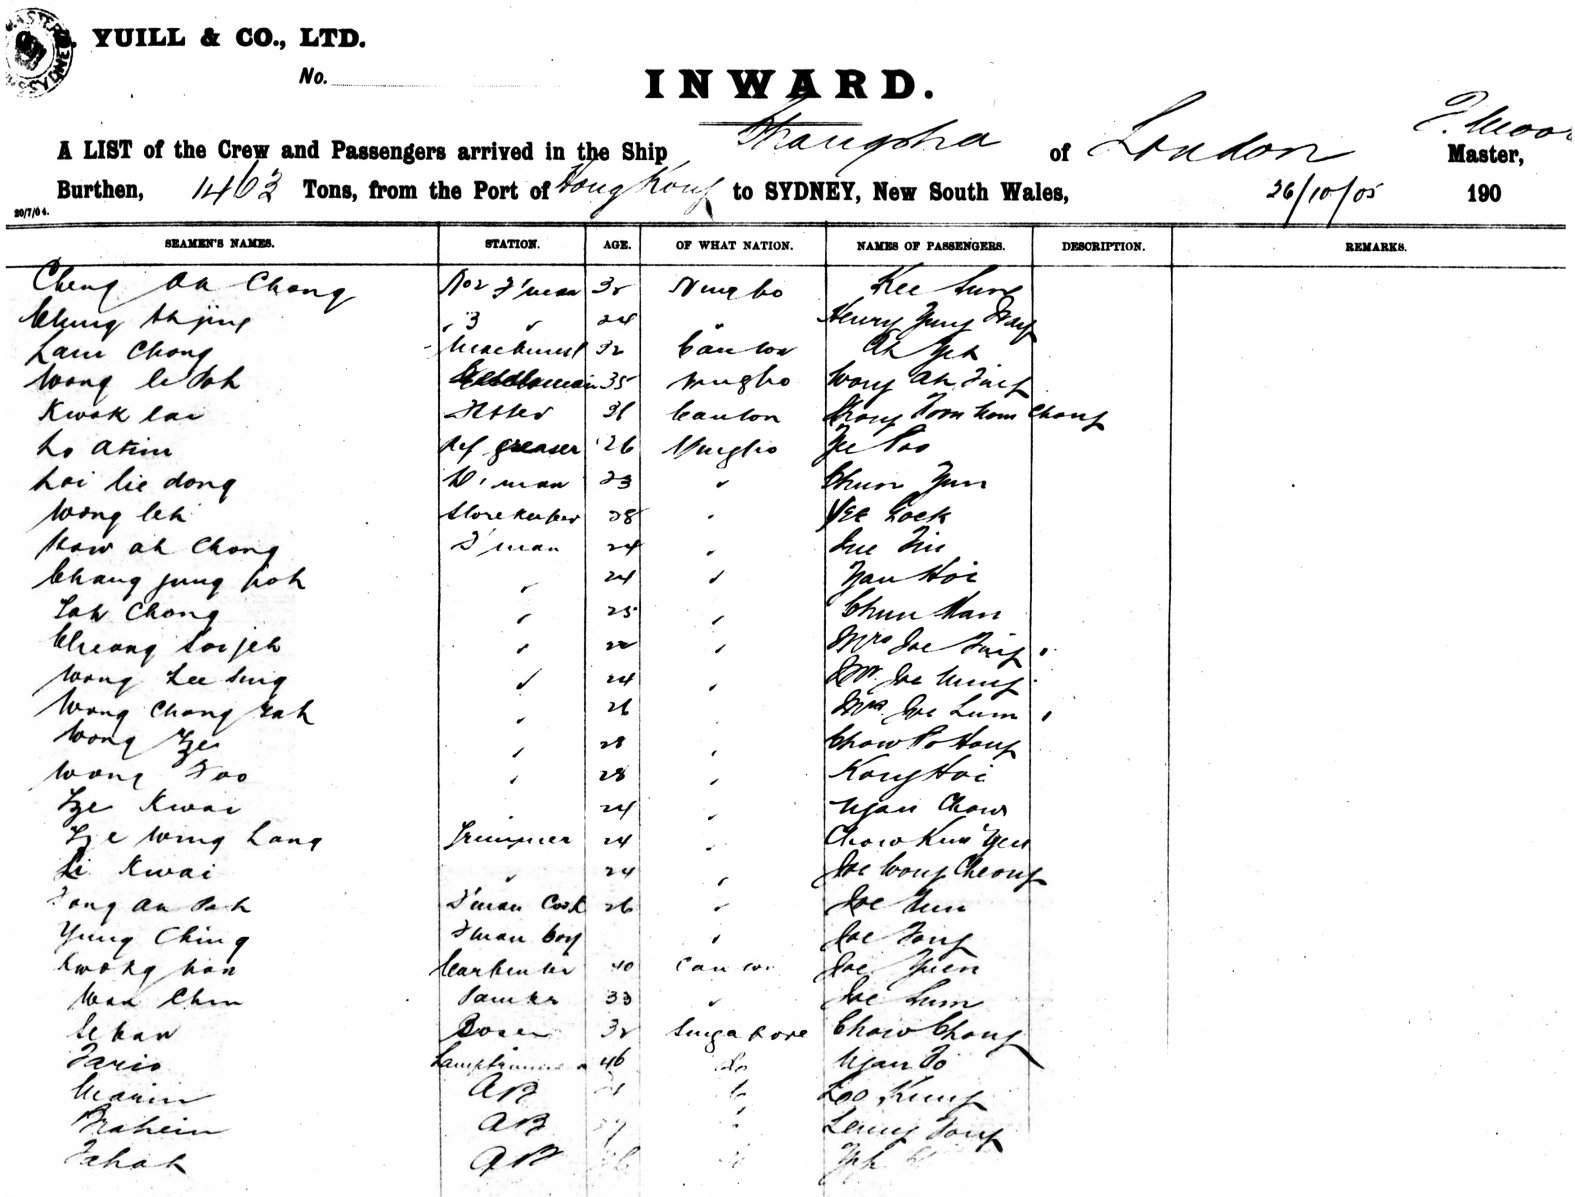 YUILL & CO., LTD.
No.
INWARD.
A LIST of the Crew and Passengers arrived in the Ship Changsha of London T. Moore Master,
Burthen, 1463 Tons, from the Port of Hong Kong to SYDNEY, New South Wales, 26/10/05 190
20/7/04.
SEAMEN'S NAMES. STATION. AGE. OF WHAT NATION. NAMES OF PASSENGERS. DESCRIPTION. REMARKS.
Cheng Ah Chong No 2 F'man 32 Ningbo Kee Sung
Chung " 3 " 24 " Henry Yung Way
Lam Chong Machinest 32 Canton Ah Yek
Wong 35 Ningbo Wong Ah Ting
Kwok Lai Fitter 36 Canton Tom Chong
Lo Atim Ref greaser 26 Ningbo Yee Poo
Loi lie dong D'man 23 " Chun Yun
Wong leh Storekeeper 28 " Yee Lock
How ah Chong F'man 24 " Jue Tin
Chang jung poh " 24 " Yan Hoi
Yah Chong " 25 " Chun Han
Cheang Soi jeh " 22 " Mrs Joe Ting "
Wong Lee Sing " 24 " Mr. Joe Mung
Wong Chong Yah " 26 Mrs. Joe Lum "
Wong Ze " 28 " Chow Po Hong
Wong Foo " 28 " Kong Hoi
Ze Kwai 24 " Ngan Chow
Ze Wing Lang Trimmer 24 " Chow Kum Yeu
Li Kwai " 24 " Joe Wong Cheong
Fong Ah F'man Cook 26 " Joe Mun
Yung Ching F'man boy " Joe Tong
Kwong hon Carpenter 40 Canton Joe Yuen
Wan Chun Painter 33 " Joe Lum
Seban Bosen 32 Singapore Chow Chong
Fario Lamptrimmer 46 Do Ngan To
Marin AB Loo Kung
Brahein AB Leung Tong
Tahak AB Yip